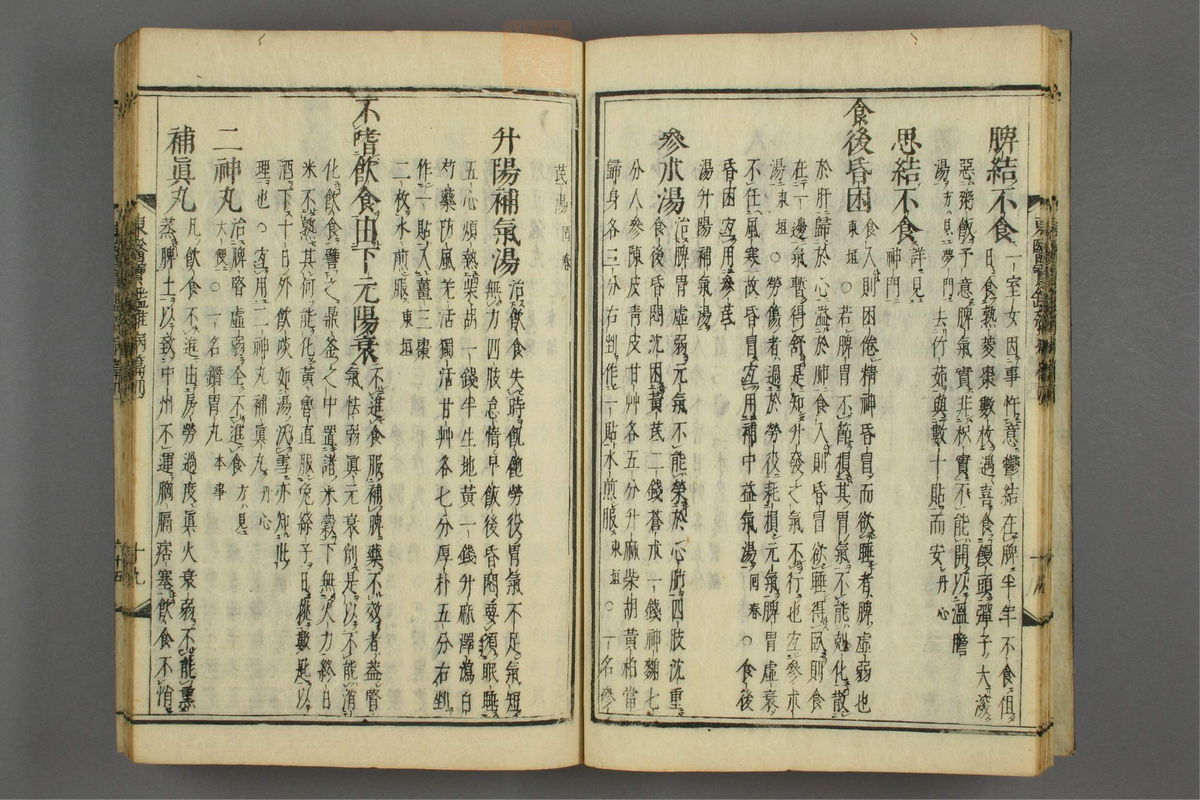 脾結不食 一室女因事忤意鬱結在脾半年不食但
日食熟菱棗數枚遇喜食饅頭彈子大深
惡粥飯予意脾氣實非枳實不能開以溫膽
湯方見夢門去竹茹與數十貼而安丹心
思結不食 詳見神門
食後昏困 食入則困倦精神昏冒而欲睡者脾虛弱也
東垣○若脾胃不節損其胃氣不能剋化散
於肝歸於心溢於肺食入則昏冒欲睡得臥則食
在一邊氣暫得舒是知升發之氣不行也宜參朮
湯東垣○勞傷者過於勞役耗損元氣脾胃虛衰
不任風寒故昏冒宜用補中益氣湯回春○食後
昏困宜用參芪
湯升陽補氣湯
參朮湯 治脾胃虛弱元氣不能榮於心肺四肢沈重
食後昏悶沈困黃芪二錢蒼朮一錢神麴七
分人參陳皮青皮甘艸各五分升麻柴胡黃柏當
歸身各三分右剉作一貼水煎服東垣○一名參
芪湯回春
升陽補氣湯 治飲食失時飢飽勞役胃氣不足氣短
無力四肢怠惰早飯後昏悶要須眠睡
五心煩熱柴胡一錢半生地黃一錢升麻澤瀉白
芍藥防風羌活獨活甘艸各七分厚朴五分右剉
作一貼入薑三棗
二枚水煎服東垣
不嗜飲食由下元陽衰 不進食服補脾藥不效者蓋腎
氣怯弱眞元衰削是以不能消
化飲食譬之鼎釜之中置諸米穀下無火力終日
米不熟其何能化黃魯直服兔絲子日挑數匙以
酒下十日外飲啖如湯沃雪亦知此
理也○宜用二神丸補眞丸丹心
二神丸 治脾腎虛弱全不進食方見
大便○一名鑽胃丸本事
補眞丸 凡飲食不進由房勞過度眞火衰弱不能熏
蒸脾土以致中州不運胸膈痞塞飲食不消